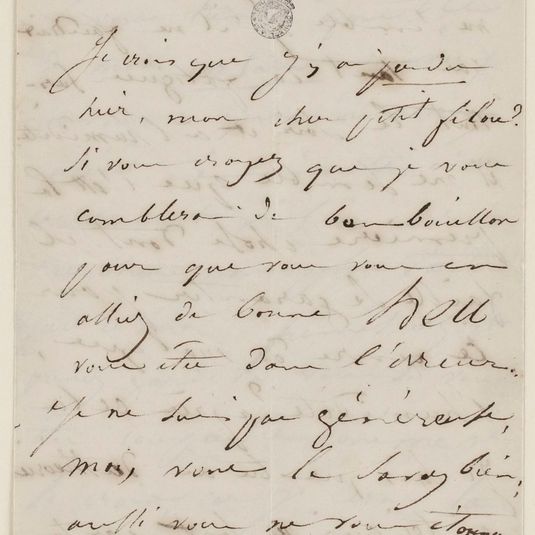 Je crois que j'y ai perdu
hier, mon cher petit filou ?
Si vous croyez que je vous
comblerai de bon bouillon
pour que vous vous en
alliez de bonne heu
vous êtes dans l'erreur.
Je ne suis pas généreuse,
moi, vous le savez bien,
aussi vous ne vous